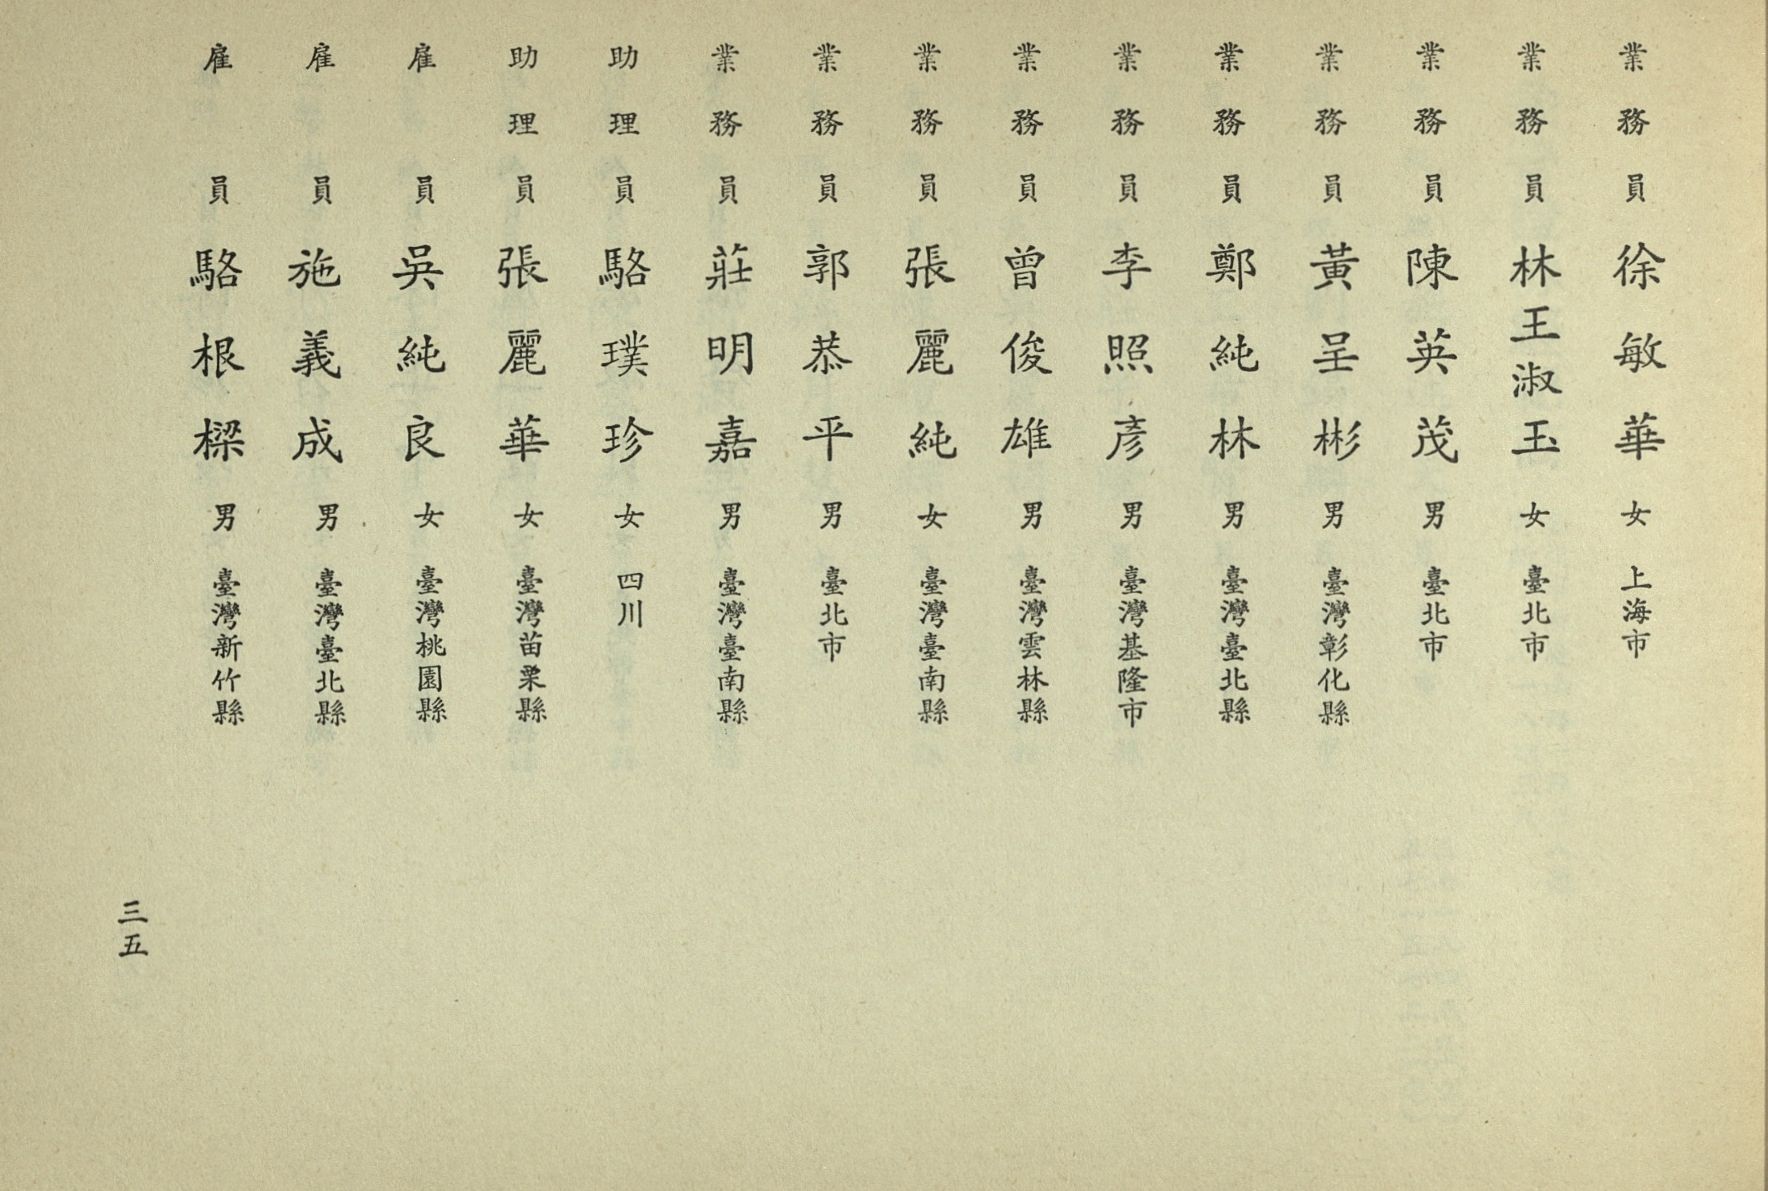 業務員 徐敏華 女 上海市
業務員 林王淑玉 女 臺北市
業務員 陳英茂 男 臺北市
業務員 黃呈彬 男 臺灣彰化縣
業務員 鄭純林 男 臺灣臺北縣
業務員 李照彥 男 臺灣基隆市
業務員 曾俊雄 男 臺灣雲林縣
業務員 張麗純 女 臺灣臺南縣
業務員 郭恭平 男 臺北市
業務員 莊明嘉 男 臺灣臺南縣
助理員 駱璞珍 女 四川
助理員 張麗華 女 臺灣苗栗縣
雇員 吳純良 女 臺灣桃園縣
雇員 施義成 男 臺灣臺北縣
雇員 駱根樑 男 臺灣新竹縣
三五